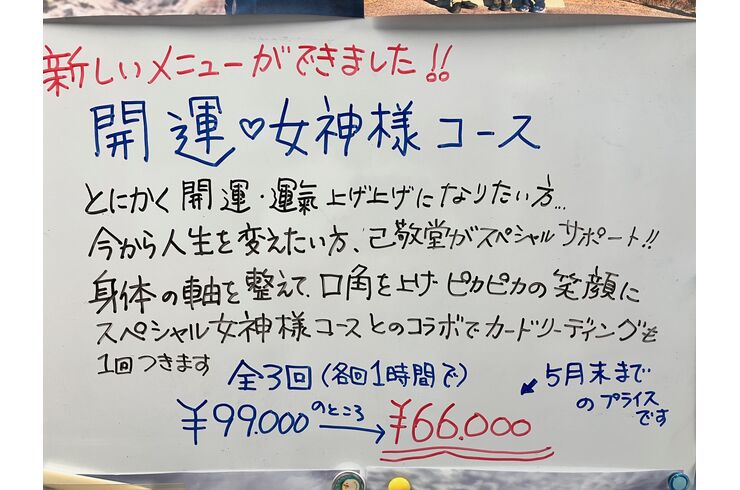 新しいメニューができました!!
開運♡女神様コース
とにかく開運・運氣上げ上げになりたい方...
今から人生を変えたい方、己敬堂がスペシャルサポート!!
身体の軸を整えて、口角を上げピカピカの笑顔に
スペシャル女神様コースとのコラボでカードリーディングも
1回つきます
全3回(各回1時間で)
¥99.000のところ→¥66.000
←5月末まで
のプライス
です